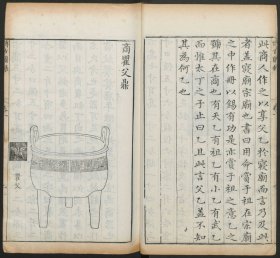 此商人作之以享父乙於寢廟而言乃且
者蓋寢廟宗廟也書曰用命賞于祖在宗廟
之中作冊以錫有功是亦賞于祖之意乙之
號其在商也有天乙有祖乙有小乙有武乙
而惟太丁之子止曰乙且此言父乙蓋不知
其為何乙也
商瞿父鼎
瞿父